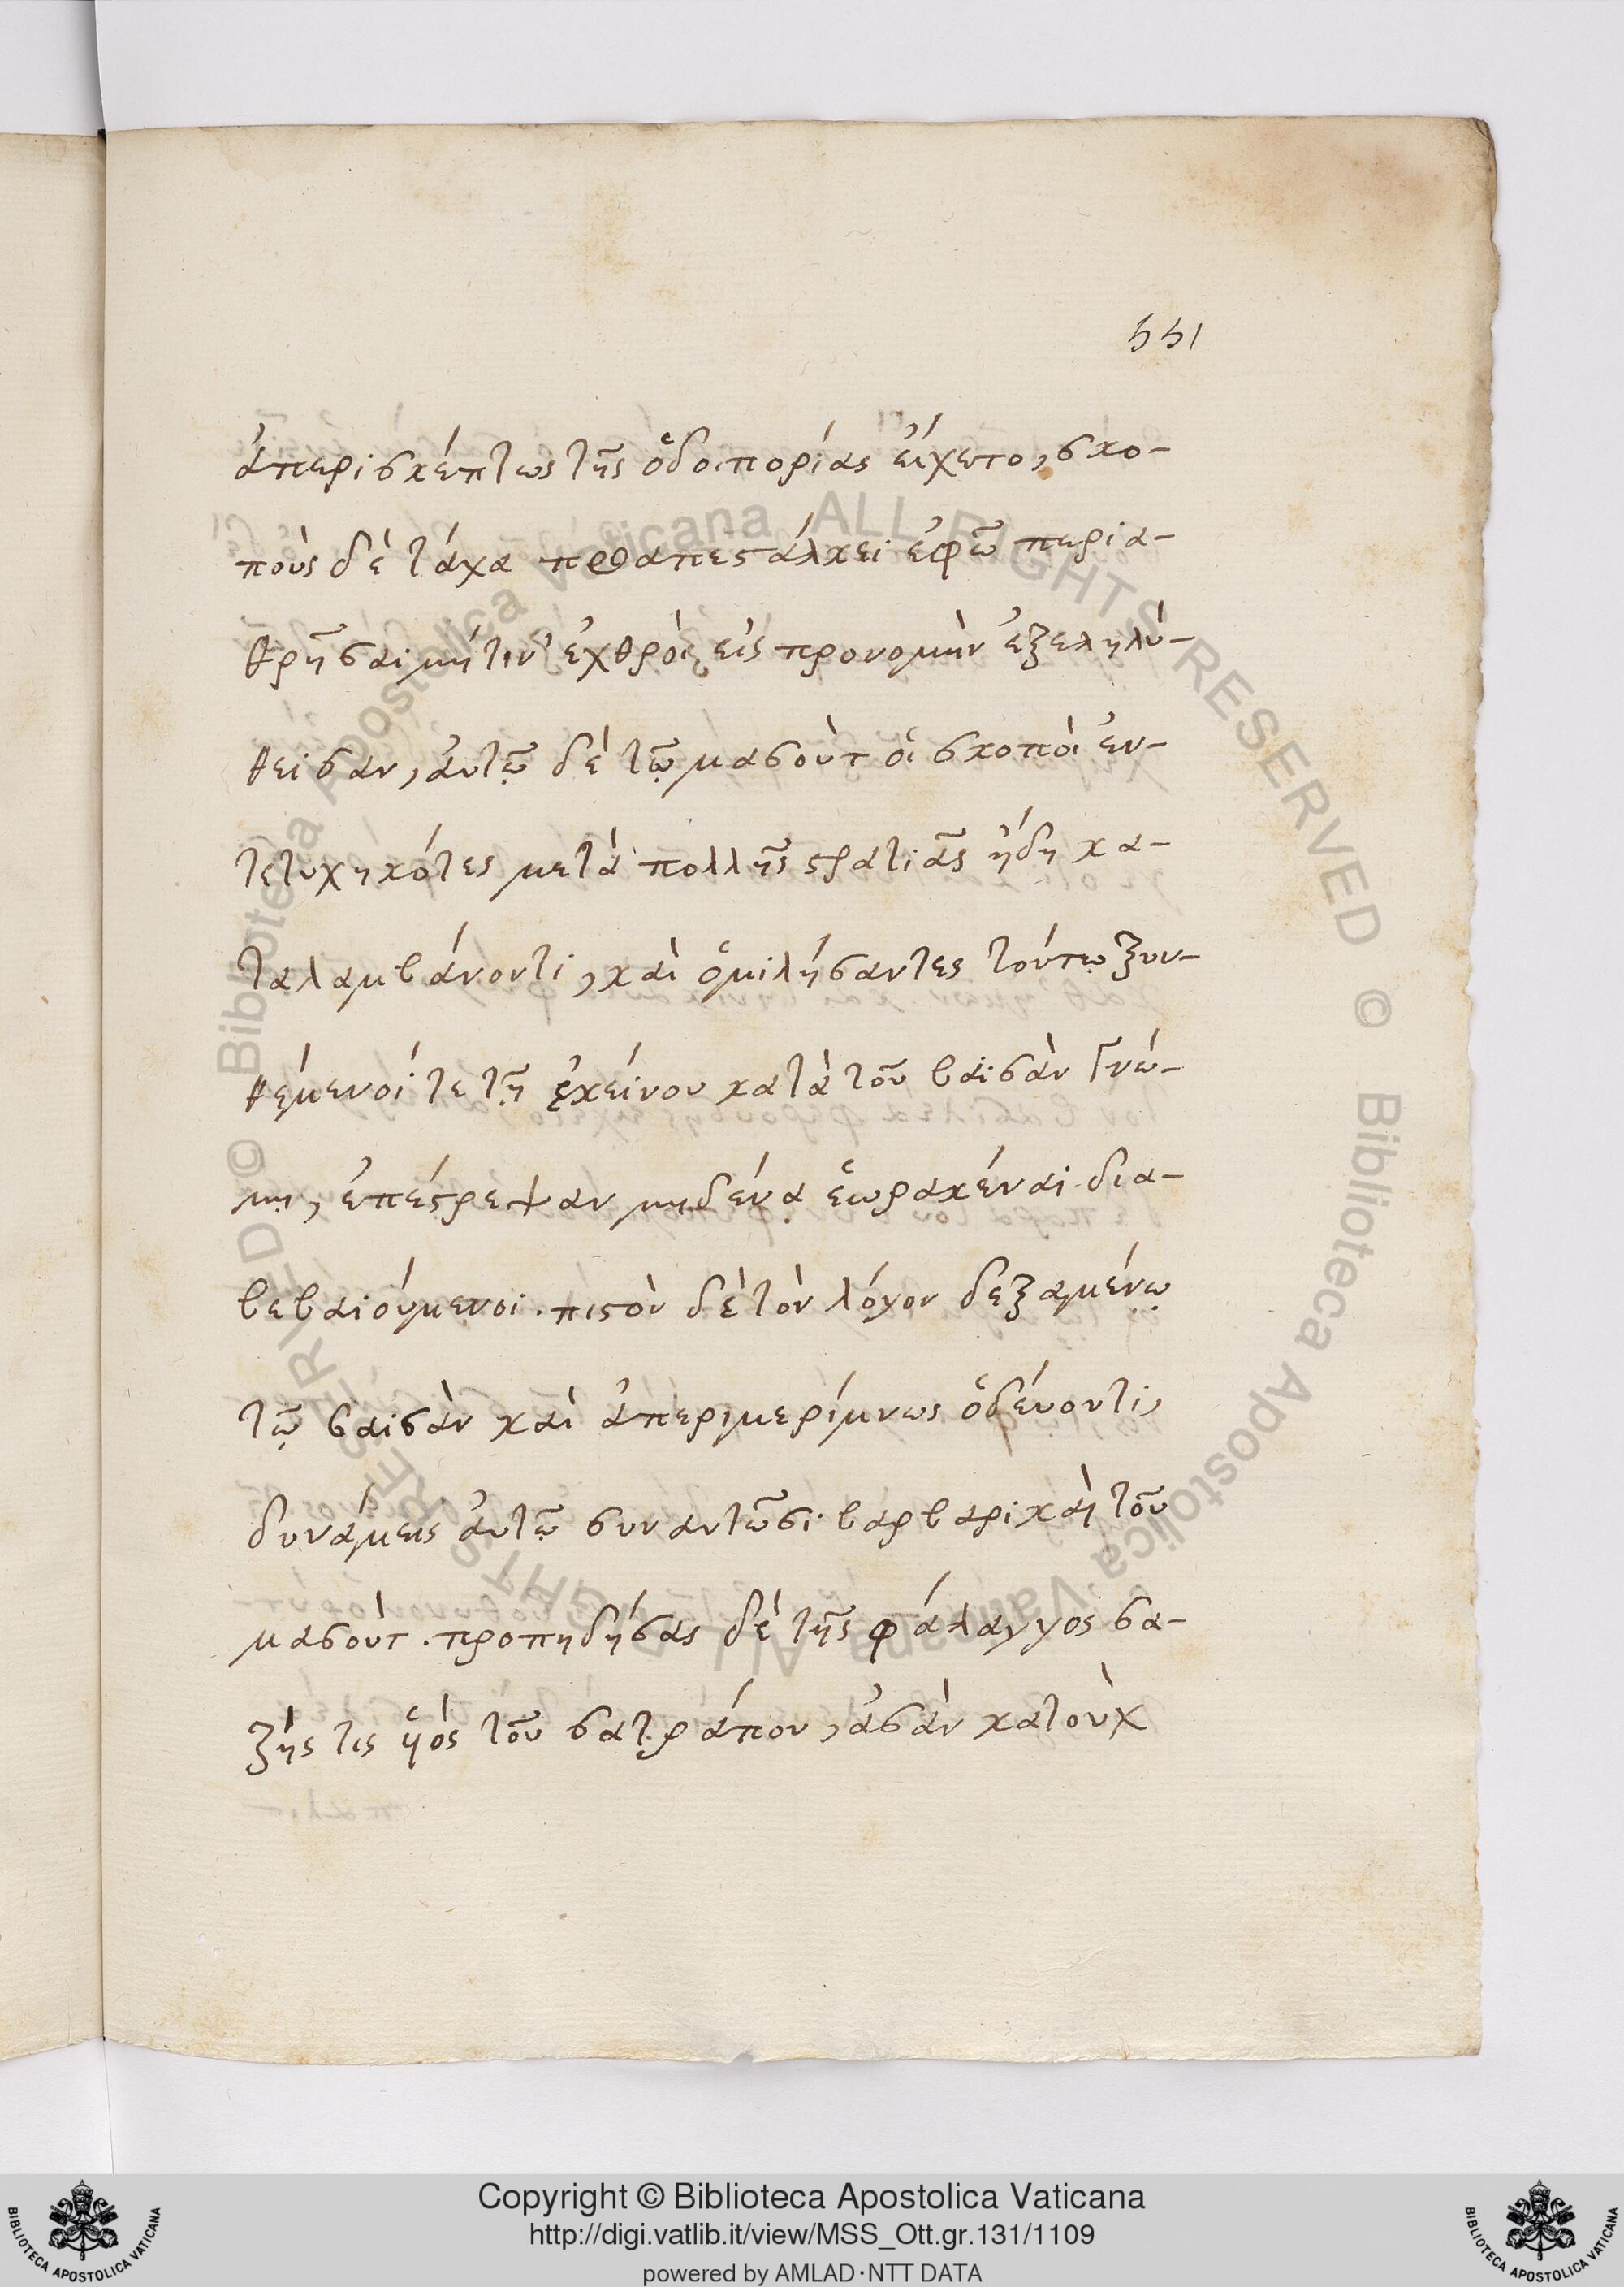 551
ἀπερισκέπτως τῆς ὁδοιπορίας εἴχετο, σκο-
ποὺς δὲ τάχα προαπεστάλκει ἐφῶ περια-
θρῆσαι μήτιν' ἐχθροὶ εἰς προνομὴν ἐξεληλύ-
θεισαν, ἀυτῷ δὲ τῷ μασοὺτ οἱ σκοποὶ ἐν-
τετυχηκότες μετὰ πολλῆς στρατιᾶς ἤδη κα-
ταλαμβάνοντι, καὶ ὁμιλήσαντες τούτῳ ξυν-
θέμενοί τε τῇ ἐκείνου κατὰ τοῦ βαϊσὰν γνώ-
μῃ, ἐπέστρεψαν μηδένα ἑωρακέναι δια-
βεβαιούμενοι. πιστὸν δὲ τὸν λόγον δεξαμένῳ
τῷ βαϊσὰν καὶ ἀπεριμερίμνως ὁδέυοντι,
δυνάμεις ἀυτῷ συναντῶσι βαρβαρικαὶ τοῦ
μασοὺτ. προπηδήσας δὲ τῆς φάλαγγος σα-
ζής τις ὑϊὸς τοῦ σατράπου, ἀσὰν κατοὺχ
Copyright © Biblioteca Apostolica Vaticana
http://digi.vatlib.it/view/MSS_Ott.gr.131/1109
powered by AMLAD·NTT DATA
BIBLIOTECA APOSTOLICA VATICANA
BIBLIOTECA APOSTOLICA VATICANA
© Biblioteca Apostolica Vaticana ALL RIGHTS RESERVED © Biblioteca Apostolica Vaticana ALL RIGHTS RESERVED